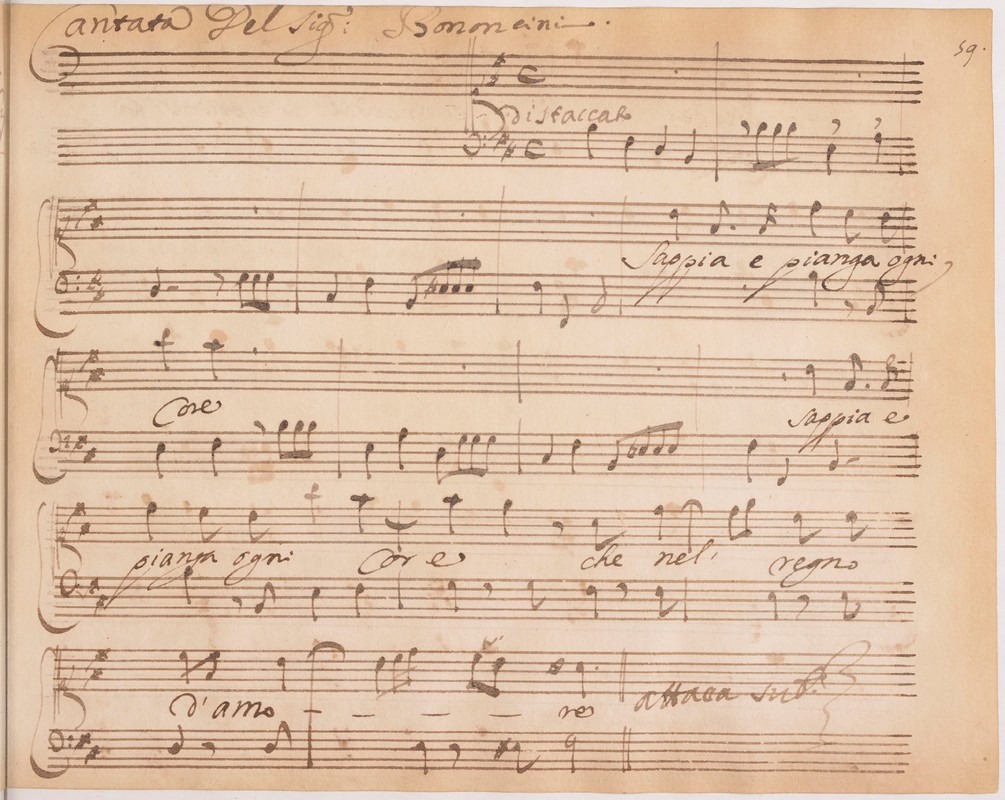 Cantata Del Sig.r Bononcini.
59.
distaccato
Sappia e pianga ogni
Core sappia e
pianga ogni Core che nel' regno
d'amo - - - - re attaca sub.o